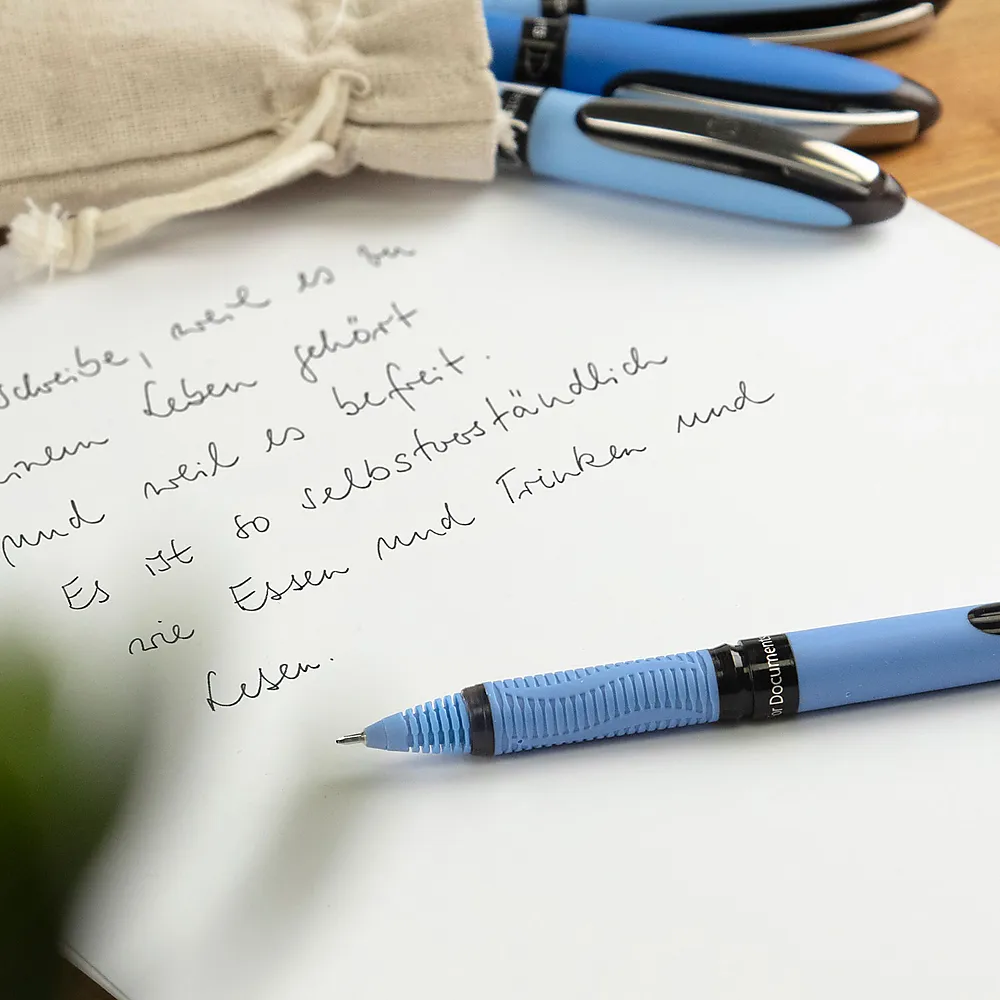 schreibe, weil es zu
einem Leben gehört
und weil es befreit.
Es ist so selbstverständlich
wie Essen und Trinken und
Lesen.
for Documents